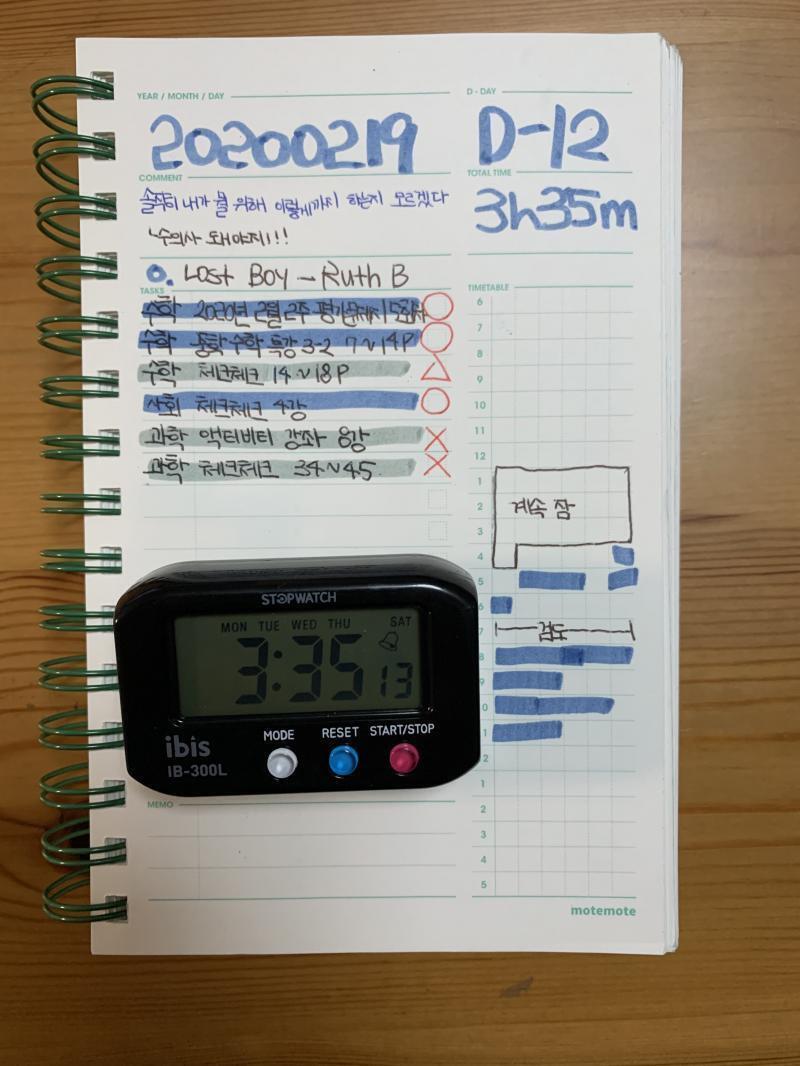 YEAR / MONTH / DAY
20200219
D - DAY
D-12
COMMENT
솔직히 내가 뭘 위해 이렇게까지 하는지 모르겠다
수의사 돼야지!!!
TOTAL TIME
3h35m
Lost Boy - Ruth B
TASKS
수학 2020년 2월 2주 평가문제지 5회차
수학 중학수학 특강 3-2 7~14P
수학 체크체크 14~18P
사회 체크체크 4강
과학 액티비티 강좌 8강
과학 체크체크 34~45
TIMETABLE
6
7
8
9
10
11
12
1
2 계속 잠
3
4
5
6
7 검도
8
9
0
1
2
1
2
3
4
5
STOPWATCH
MON TUE WED THU SAT
3:35 13
MODE RESET START/STOP
ibis
IB-300L
MEMO
motemote